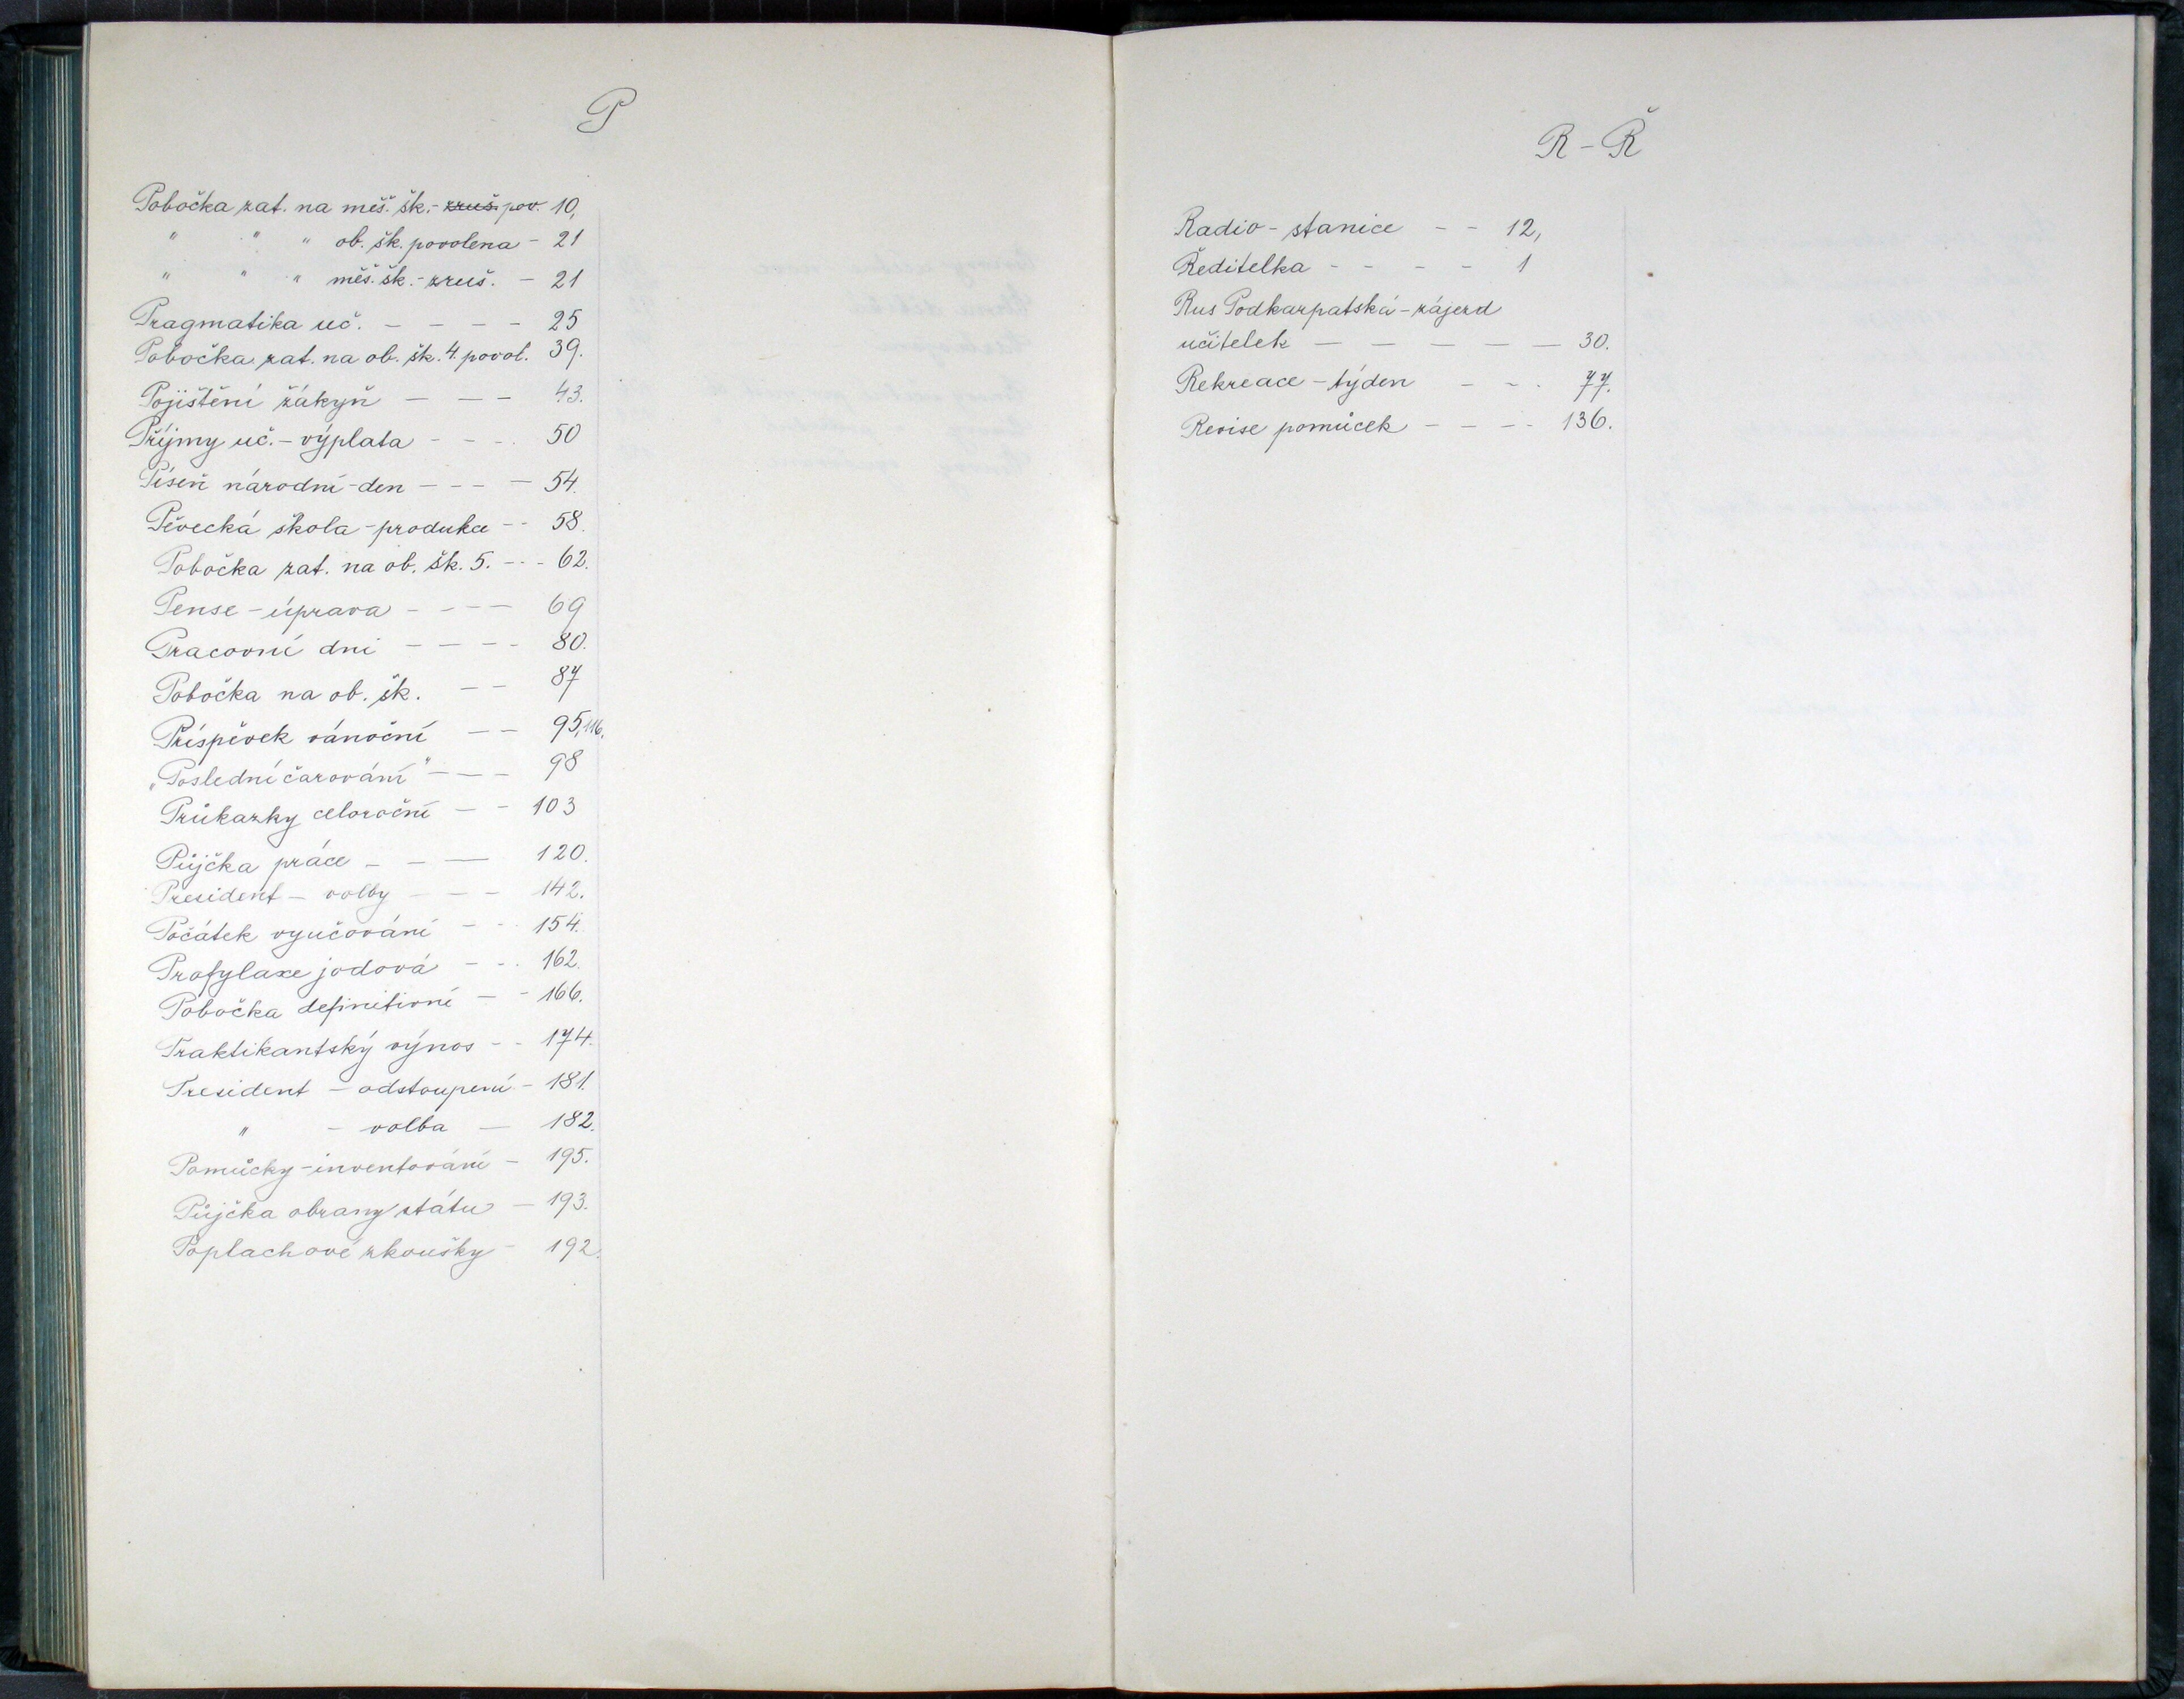 P
Pobočka zat. na měš. šk. - zruš. pov. 10,
" " " ob. šk. povolena - 21
" " " měš. šk. - zruš. - 21
Pragmatika uč. - - - - 25
Pobočka zat. na ob. šk. 4. povol. 39.
Pojištění žákyň - - - 43.
Příjmy uč. - výplata - - - 50
Píseň národní - den - - - - 54.
Pěvecká škola - produkce - - 58.
Pobočka zat. na ob. šk. 5. - - - 62.
Pense - úprava - - - - 69
Pracovní dni - - - - 80.
Pobočka na ob. šk. - - 87
Příspěvek vánoční - - 95, 116.
„Poslední čarování" - - - 98
Průkazky celoroční - - 103
Půjčka práce - - - 120.
President - volby - - - 142.
Počátek vyučování - - 154.
Profylaxe jodová - - - 162.
Pobočka definitivní - - 166.
Praktikantský výnos - - 174.
President - odstoupení - 181.
" - volba - 182.
Pomůcky - inventování - 195.
Půjčka obrany státu - 193.
Poplachové zkoušky - 192.
R - Ř
Radio - stanice - - 12,
Ředitelka - - - - 1
Rus Podkarpatská - zájezd
učitelek - - - - - 30.
Rekreace - týden - - - 77.
Revise pomůcek - - - - 136.